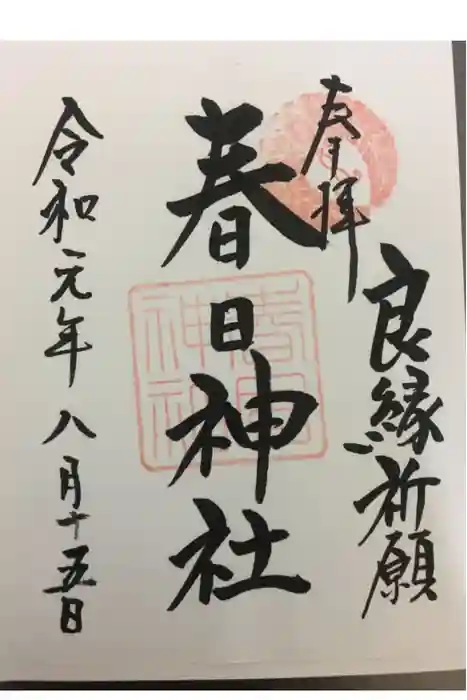 奉拝
良縁祈願
春日神社
春日神社
令和元年八月十五日